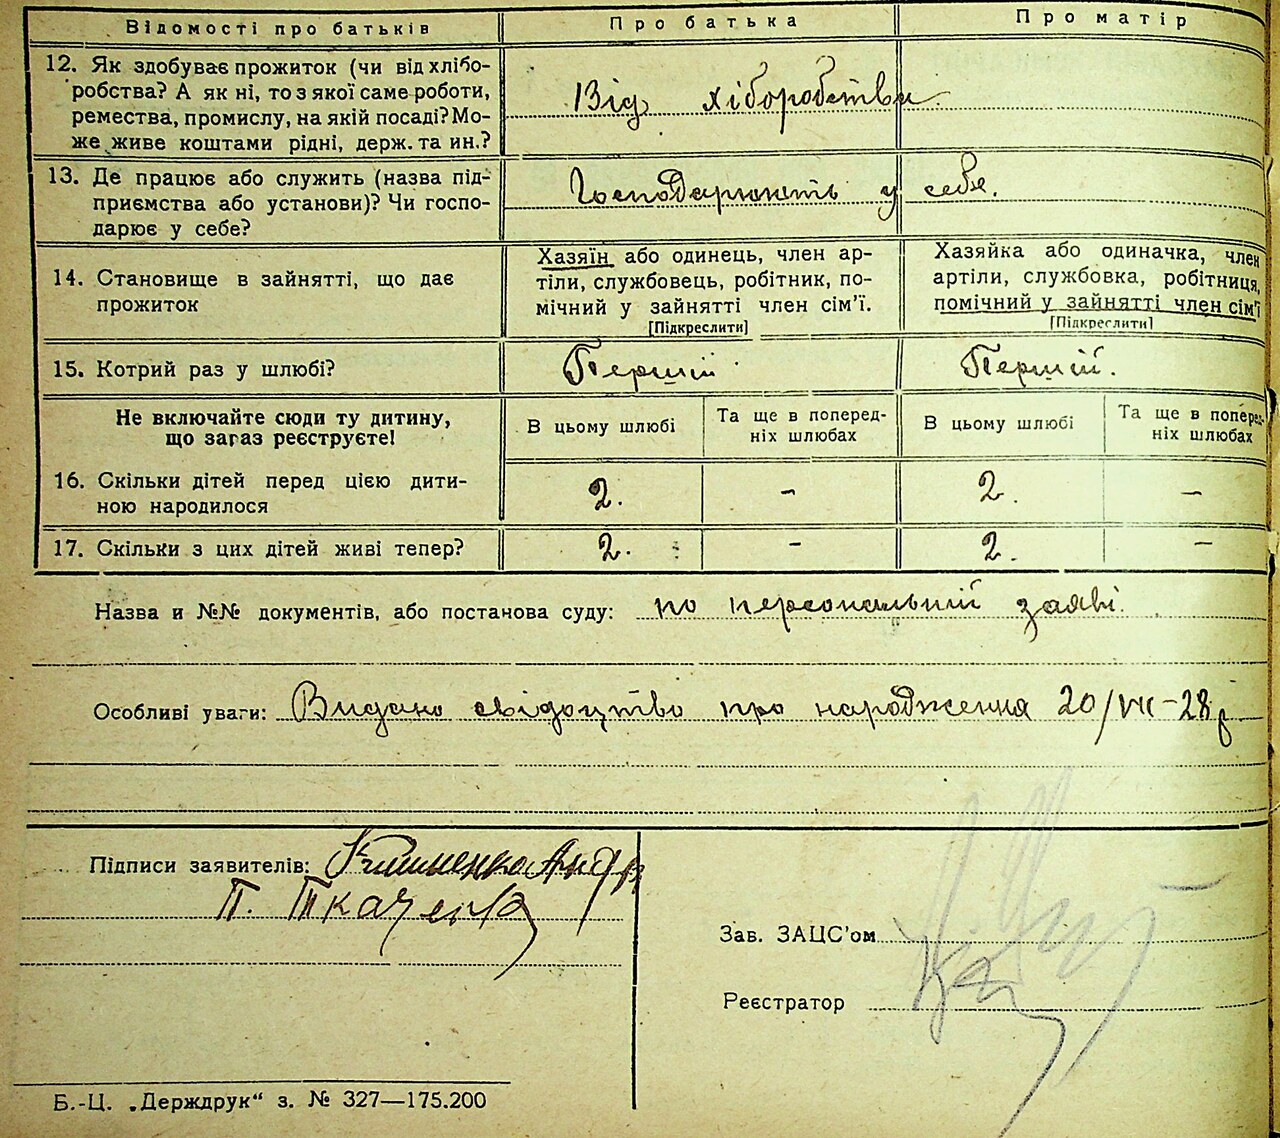 Відомості про батьків Про батька Про матір
12. Як здобуває прожиток (чи від хлібо-
робства? А як ні, то з якої саме роботи,
ремества, промислу, на якій посаді? Мо-
же живе коштами рідні, держ. та ин.?
Від хіборобства
13. Де працює або служить (назва під-
приємства або установи)? Чи госпо-
дарює у себе?
Господарюють у себе.
14. Становище в зайнятті, що дає
прожиток
Хазяїн або одинець, член ар-
тіли, службовець, робітник, по-
мічний у зайнятті член сім'ї.
[Підкреслити]
Хазяйка або одиначка, член
артіли, службовка, робітниця,
помічний у зайнятті член сім'ї
[Підкреслити]
15. Котрий раз у шлюбі? Перший Перший.
Не включайте сюди ту дитину,
що загаз реєструєте!
В цьому шлюбі
Та ще в поперед-
ніх шлюбах
В цьому шлюбі
Та ще в поперед-
ніх шлюбах
16. Скільки дітей перед цією дити-
ною народилося
2. - 2. -
17. Скільки з цих дітей живі тепер? 2. - 2. -
Назва и №№ документів, або постанова суду: по персональній заяві.
Особливі уваги: Видано свідоцтво про народження 20/VII-28 р
Підписи заявителів:
П. Ткаченко
Зав. ЗАЦС'ом
Реєстратор
Б.-Ц. „Держдрук“ з. № 327—175.200